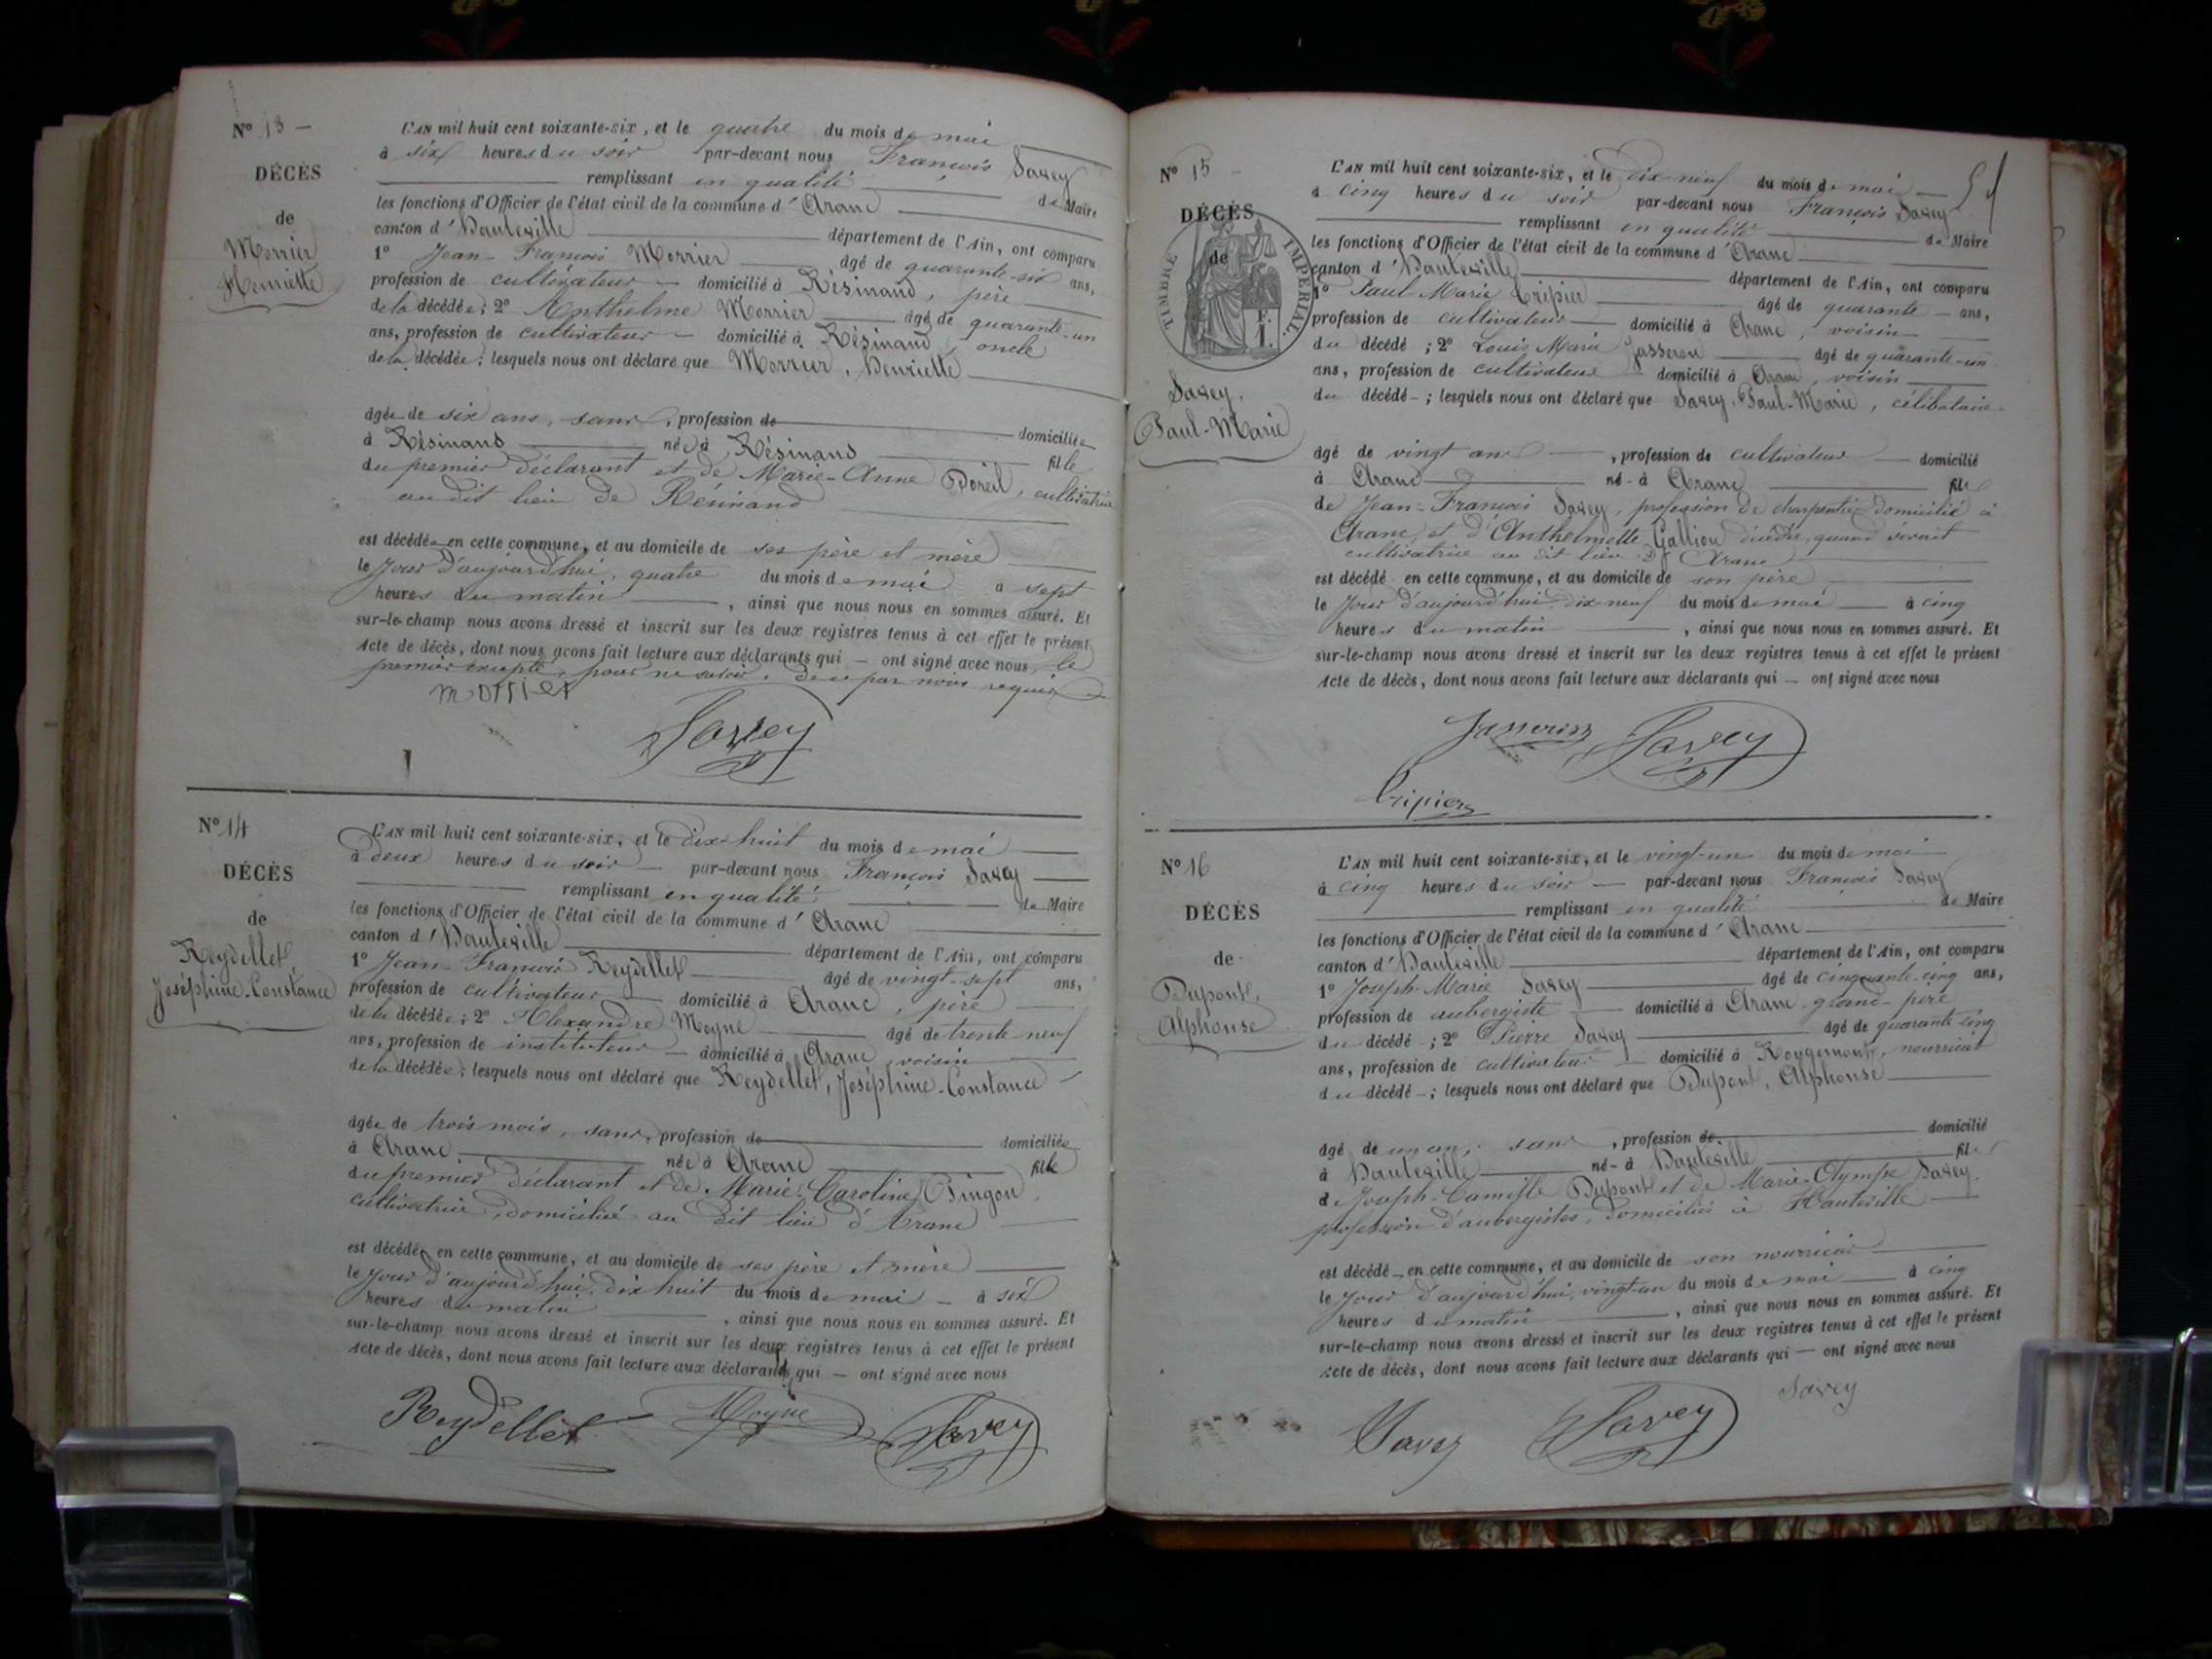 N° 13 —
DÉCÈS
de
Morrier
Henriette
L'AN mil huit cent soixante-six, et le quatre du mois de mai
à six heures du soir par-devant nous François Savey
remplissant en qualité de Maire
les fonctions d'Officier de l'état civil de la commune d'Aranc
canton d'Hauteville département de l'Ain, ont comparu
1° Jean-François Morrier âgé de quarante-six ans,
profession de cultivateur domicilié à Résinand, père
de la décédée; 2° Anthelme Morrier âgé de quarante-un
ans, profession de cultivateur domicilié à Résinand, oncle
de la décédée; lesquels nous ont déclaré que Morrier, Henriette
âgée de six ans, sans, profession de domiciliée
à Résinand née à Résinand fille
du premier déclarant et de Marie-Anne Doreil, cultivatrice
au dit lieu de Résinand
est décédée en cette commune, et au domicile de ses père et mère
le jour d'aujourd'hui, quatre du mois de mai à sept
heures du matin, ainsi que nous nous en sommes assuré. Et
sur-le-champ nous avons dressé et inscrit sur les deux registres tenus à cet effet le présent
Acte de décès, dont nous avons fait lecture aux déclarants qui — ont signé avec nous, le
premier excepté, pour ne savoir, de ce par nous requis
morrier
Savey
N° 14
DÉCÈS
de
Reydellet,
Joséphine-Constance
L'AN mil huit cent soixante-six, et le dix-huit du mois de mai
à deux heures du soir par-devant nous François Savey
remplissant en qualité de Maire
les fonctions d'Officier de l'état civil de la commune d'Aranc
canton d'Hauteville département de l'Ain, ont comparu
1° Jean-François Reydellet âgé de vingt-sept ans,
profession de cultivateur domicilié à Aranc, père
de la décédée; 2° Alexandre Moyne âgé de trente-neuf
ans, profession de instituteur domicilié à Aranc, voisin
de la décédée; lesquels nous ont déclaré que Reydellet, Joséphine-Constance
âgée de trois mois, sans, profession de domiciliée
à Aranc née à Aranc fille
du premier déclarant et de Marie-Caroline Pingon,
cultivatrice, domiciliée au dit lieu d'Aranc
est décédée en cette commune, et au domicile de ses père et mère
le jour d'aujourd'hui, dix-huit du mois de mai à six
heures du matin, ainsi que nous nous en sommes assuré. Et
sur-le-champ nous avons dressé et inscrit sur les deux registres tenus à cet effet le présent
Acte de décès, dont nous avons fait lecture aux déclarants qui — ont signé avec nous
Reydellet Moyne Savey
N° 15
DÉCÈS
de
TIMBRE IMPÉRIAL.
Savey,
Paul-Marie
L'AN mil huit cent soixante-six, et le dix-neuf du mois de mai
à cinq heures du soir par-devant nous François Savey
remplissant en qualité de Maire
les fonctions d'Officier de l'état civil de la commune d'Aranc
canton d'Hauteville département de l'Ain, ont comparu
1° Paul-Marie Tripier âgé de quarante ans,
profession de cultivateur domicilié à Aranc, voisin
du décédé; 2° Louis Marie Jasseron âgé de quarante-un
ans, profession de cultivateur domicilié à Aranc, voisin
du décédé; lesquels nous ont déclaré que Savey, Paul-Marie, célibataire
âgé de vingt ans, profession de cultivateur domicilié
à Aranc né à Aranc fils
de Jean-François Savey, profession de charpentier domicilié à
Aranc, et d'Anthelmette Gallion décédée, quand vivait
cultivatrice au dit lieu d'Aranc
est décédé en cette commune, et au domicile de son père
le jour d'aujourd'hui dix-neuf du mois de mai à cinq
heures du matin, ainsi que nous nous en sommes assuré. Et
sur-le-champ nous avons dressé et inscrit sur les deux registres tenus à cet effet le présent
Acte de décès, dont nous avons fait lecture aux déclarants qui — ont signé avec nous
Jasseron Savey
Tripier
N° 16
DÉCÈS
de
Dupont,
Alphonse
L'AN mil huit cent soixante-six, et le vingt-un du mois de mai
à cinq heures du soir par-devant nous François Savey
remplissant en qualité de Maire
les fonctions d'Officier de l'état civil de la commune d'Aranc
canton d'Hauteville département de l'Ain, ont comparu
1° Joseph-Marie Savey âgé de cinquante-cinq ans,
profession de aubergiste domicilié à Aranc, grand-père
du décédé; 2° Pierre Savey âgé de quarante-cinq
ans, profession de cultivateur domicilié à Rougemont, nourricier
du décédé; lesquels nous ont déclaré que Dupont, Alphonse
âgé de un an, sans, profession de domicilié
à Hauteville né à Hauteville fils
de Joseph-Camille Dupont et de Marie-Olympe Savey,
profession d'aubergistes, domiciliés à Hauteville
est décédé en cette commune, et au domicile de son nourricier
le jour d'aujourd'hui, vingt-un du mois de mai à cinq
heures du matin, ainsi que nous nous en sommes assuré. Et
sur-le-champ nous avons dressé et inscrit sur les deux registres tenus à cet effet le présent
Acte de décès, dont nous avons fait lecture aux déclarants qui — ont signé avec nous
Savey
Savey Savey